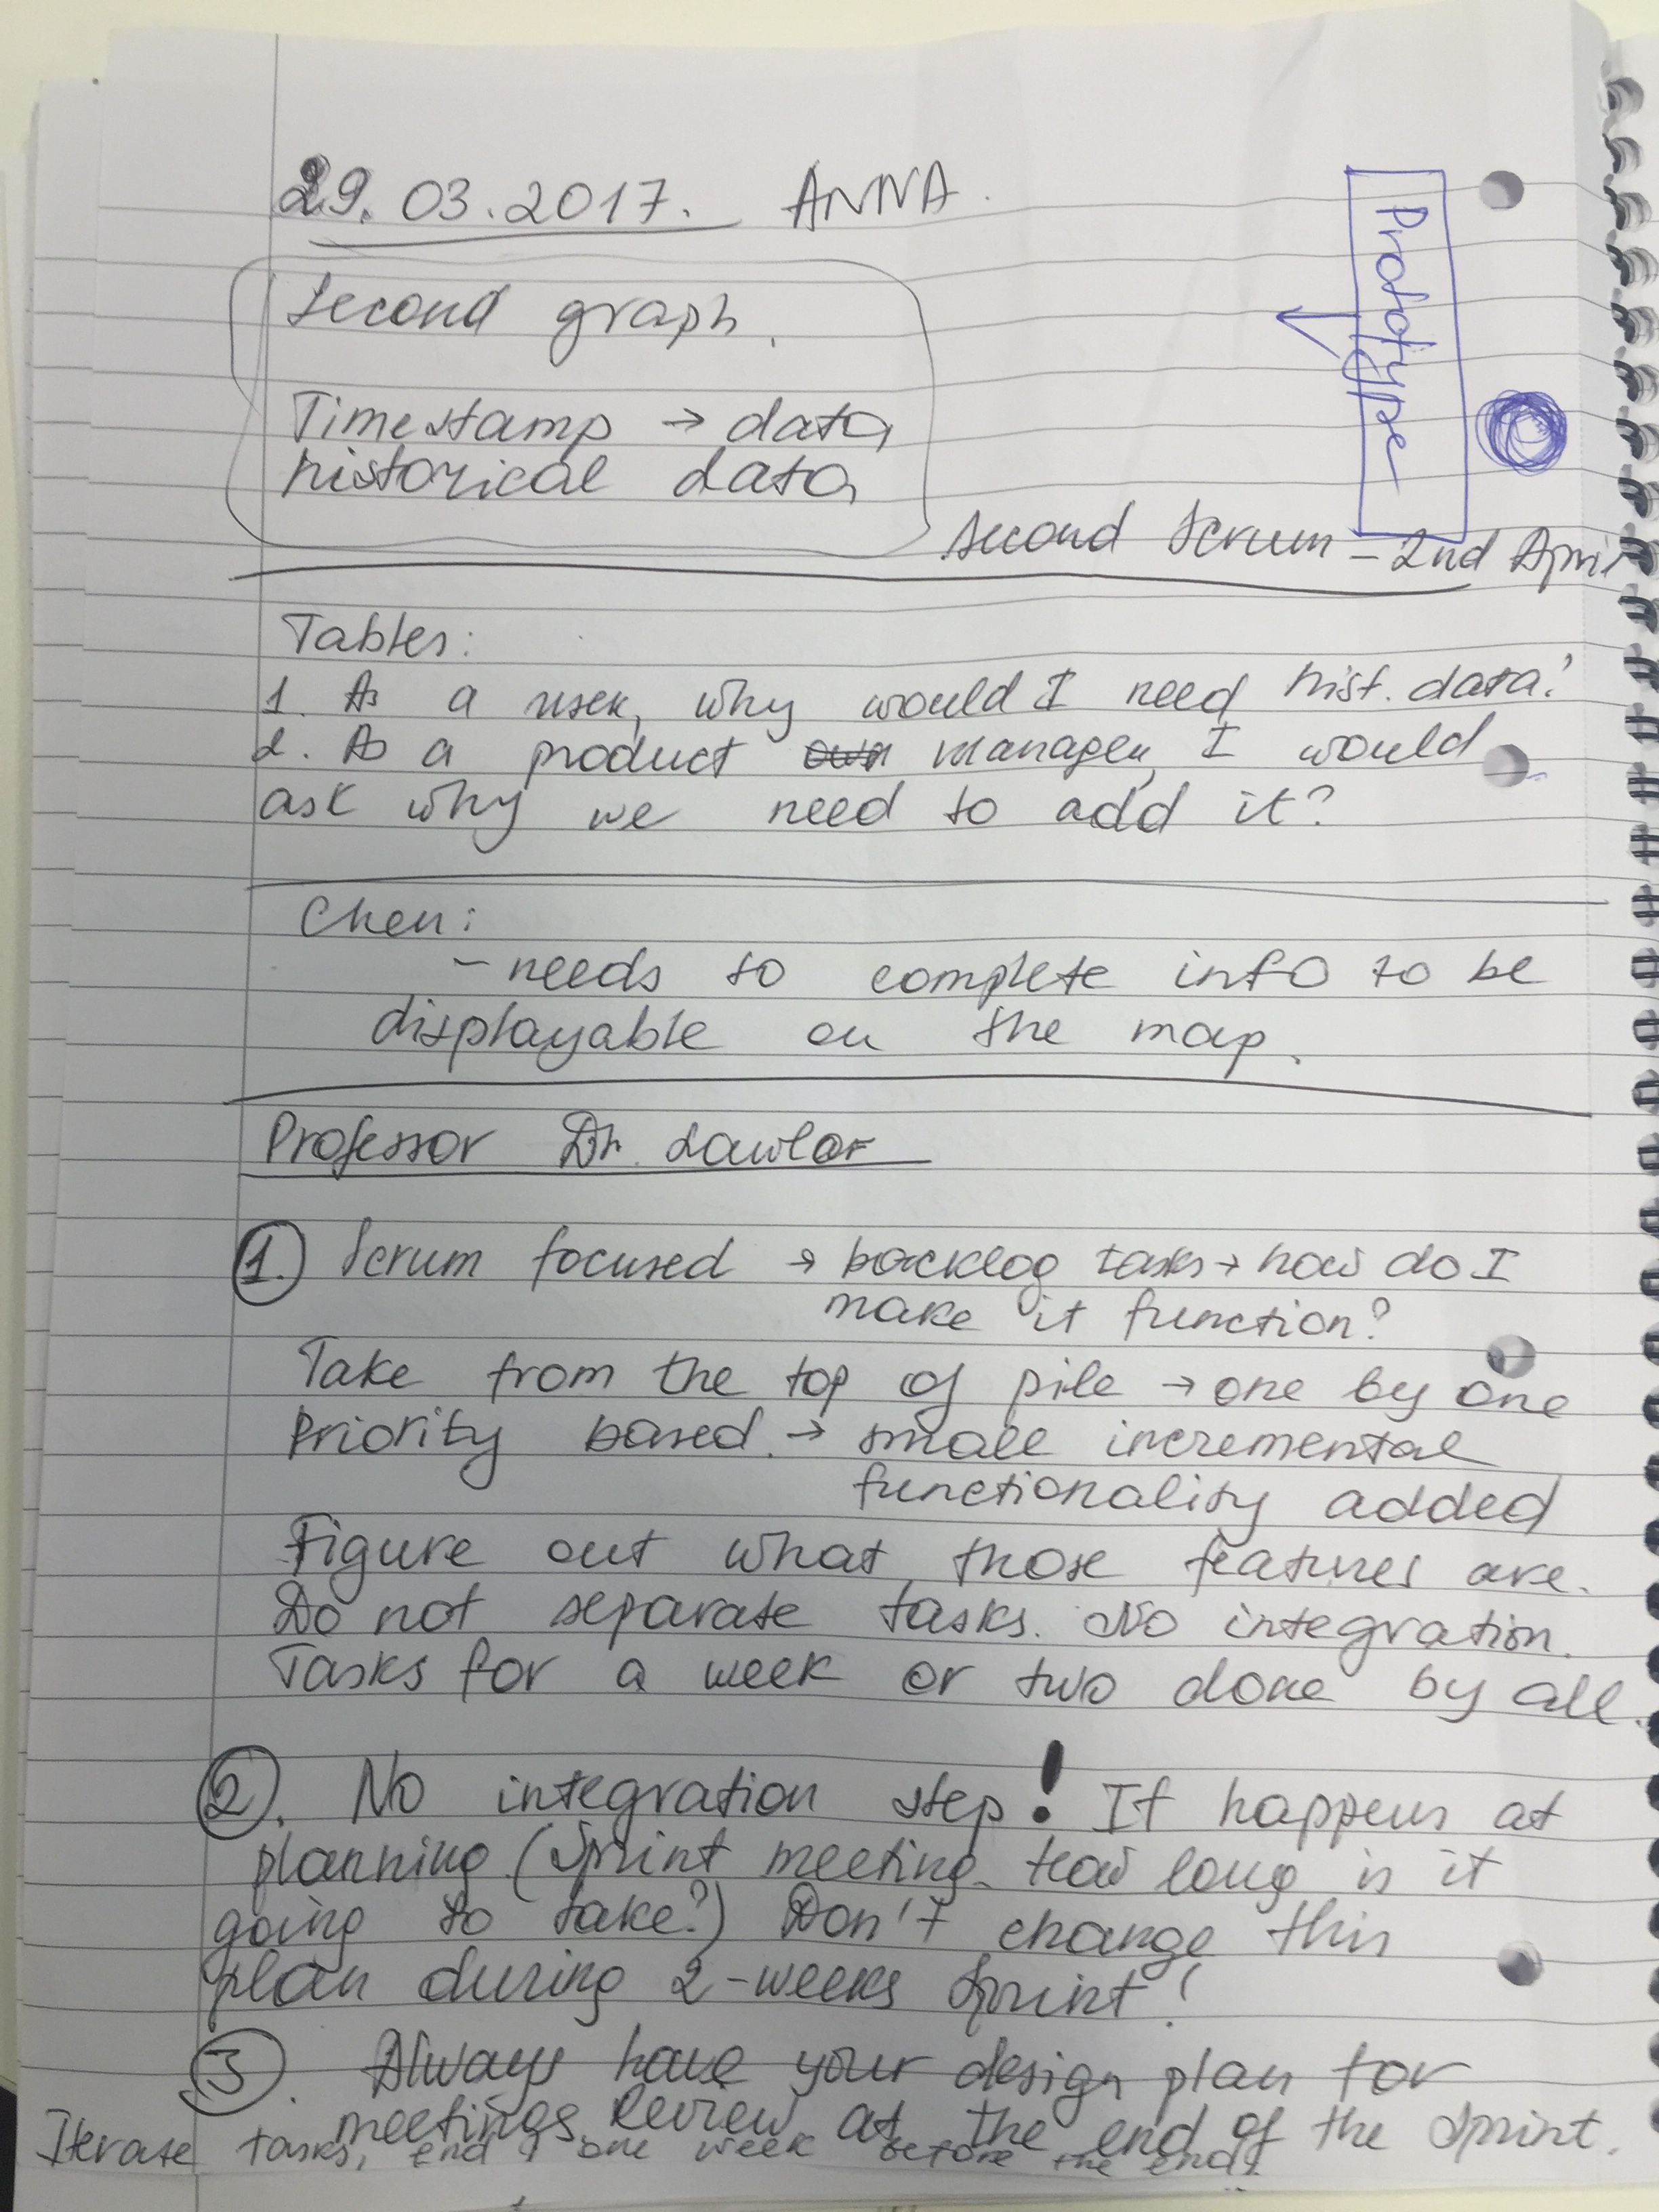 29.03.2017. ANNA.
Prototype
Second graph.
Timestamp → data
historical data
Second Scrum – 2nd April
Tables:
1. As a user, why would I need hist. data?
2. As a product own manager, I would
ask why we need to add it?
Chen:
– needs to complete info to be
displayable on the map.
Professor Dr. Lawlor
1. Scrum focused → backlog tasks → how do I
make it function?
Take from the top of pile → one by one
Priority based. → small incremental
functionality added
Figure out what those features are.
Do not separate tasks. No integration.
Tasks for a week or two done by all.
2. No integration step! It happens at
planning (Sprint meeting. How long is it
going to take?) Don't change this
plan during 2-weeks Sprint!
3. Always have your design plan for
meetings. Review at the end of the Sprint.
Iterate tasks, end one week before the end!